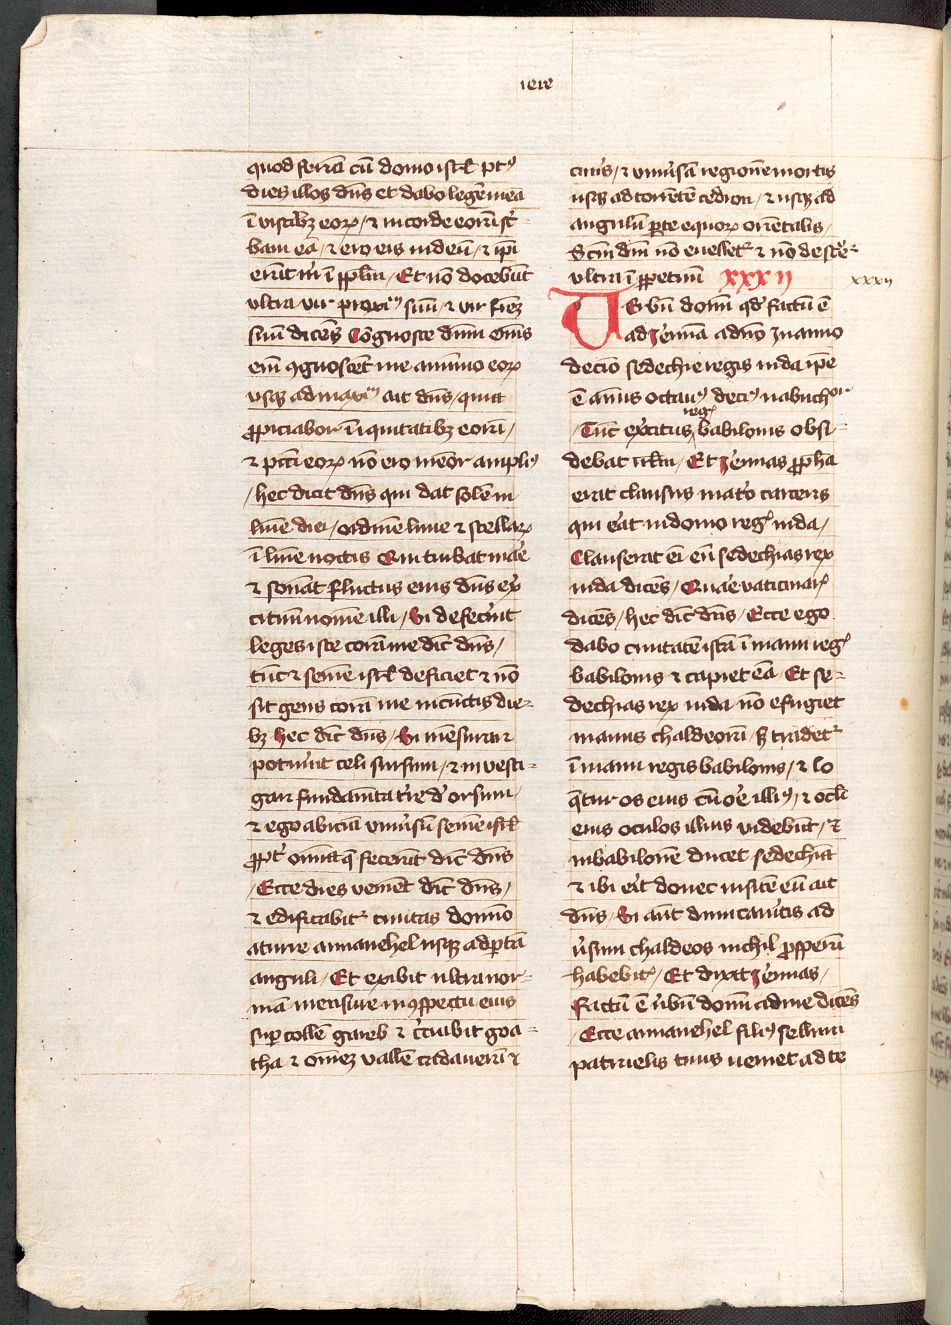 iere
quod feriā cū domo isrl pt9
dies illos dn̄s et dabo legē mea
ī viscibꝫ eoꝝ / ⁊ in corde eorū sc̄-
bam eā / ⁊ ero eis in deū / ⁊ ip̄i
erūt m̄ ī pplm̄ / Et nō docebūt
ultra vir proxi9 suū / ⁊ vir frēꝫ
suū dicēs Cōgnosce dn̄m Om̄s
em̄ ꝯgnoscēt me a minimo eoꝝ
usqꝫ ad maxi9 ait dn̄s / quia
ꝓpiciabor īiquitatibꝫ eorū /
⁊ pccī eoꝝ nō ero memōr ampli9
/ hec dicit dn̄s qui dat solē in
lumīe diei / ordinē lune ⁊ stellaꝝ
ī lumīe noctis Qui turbat mar̄e
⁊ sonāt fluctus eius dn̄s ex̄
cituū nomē illi / Si defecerīt
leges iste corā me dic̄t dn̄s /
tūc ⁊ semē isrl deficiet ⁊ nō
sit gens corā me in cūctis die-
bꝫ hec dic̄t dn̄s / Si mēsurar
potuerīt celi sursum / ⁊ investi-
gari fundamēta terre deorsum /
⁊ ego abiciā univ̄sū semē isrl
ꝓpt̄ om̄ia q̄ fecerūt dic̄t dn̄s
/ Ecce dies veniēt dic̄t dn̄s /
⁊ edificabit᷑ civitas domīo
a turre annanehel usqꝫ ad portā
anguli / Et exibit ultra nor-
mā mensure in ꝯspectu eius
suꝑ collē gareb ⁊ circuibit goa-
tha ⁊ omēꝫ vallē cadaverū ⁊
cin̄is / ⁊ univ̄sā regionē mortis
usqꝫ ad torrētē cedron / ⁊ usqꝫ ad
angulū porte equoꝝ oriētalis /
Scm̄ dn̄i nō evellet᷑ ⁊ nō destrue᷑
ultra ī ꝑpetuū XXXII
xxxii
Verbū domī qd̄ factū ē
ad Jeremiā a dn̄o In anno
decīo sedechie regis iuda ip̄e
ē ānus octav9 deci9 nabuchor
/ Tūc exc̄itus reḡ babilonis obsi-
debat irlm̄ / Et Jeremias ꝓpha
erat clausus in atrīo carceris
qui erat in domo reḡ iuda /
Clauserat em̄ eū sedechias rex
iuda dicēs / Quar̄e vaticinaris
dicēs / hec dic̄t dn̄s / Ecce ego
dabo civitatē istā ī manu reḡ
babilonis ⁊ capiet eā / Et se-
dechias rex iuda nō efugiet
manus chaldeorū / sꝫ tradet᷑
ī manu regis babilonis / ⁊ lo
q̄tur os eius cū or̄e illi9 / ⁊ oculi
eius oculos illius videbūt / ⁊
in babilonē ducet sedechiā
⁊ ibi erit donec visitē eū ait
dn̄s / Si aūt dimicaveritis ad
v̄sum chaldeos nichil ꝓsperū
habebit᷑ / Et dixit Jeremias /
Factū ē verbū domī ad me dicēs
/ Ecce annanehel fili9 sellum
patruelis tuus veniet ad te